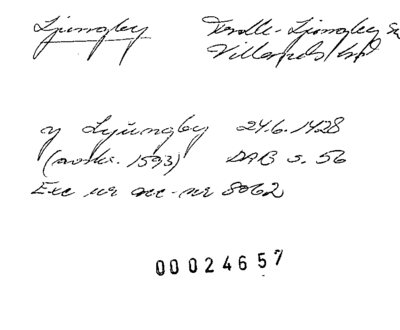 Ljungby Trolle-Ljungby sn
Villands hd
y Lyŭngby 24.6.1428
(avskr. 1593) DAB s. 56
Exc ur acc-nr 8062
00024657